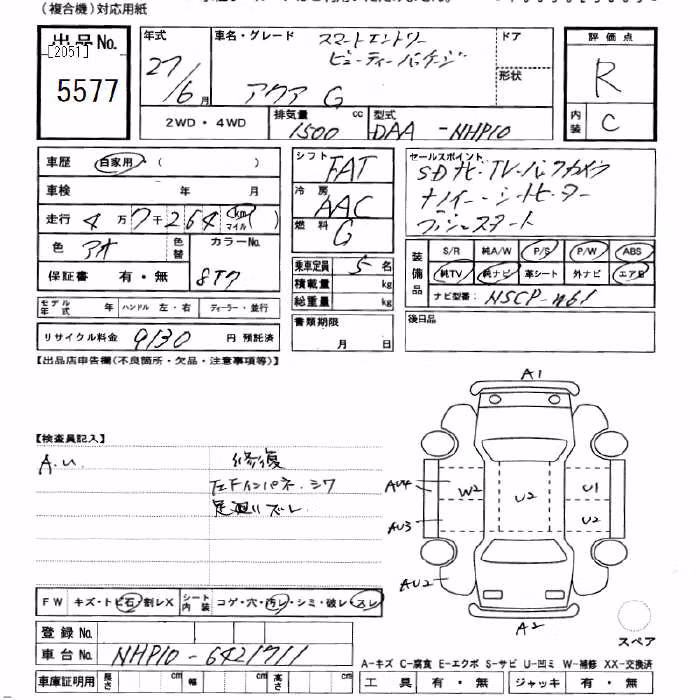 (複合機)対応用紙
出品No.
[2051]
5577
年式
27/6月
車名・グレード
スマートエントリー
ビューティーパッケージ
アクア G
ドア
形状
評価点
R
内装 C
2WD・4WD
排気量 1500 cc
型式 DAA-NHP10
車歴 自家用・( )
車検 年 月
走行 4万7千264 km マイル ( )
色 アオ 色替 カラーNo. 8T7
保証書 有・無
モデル年式 年 ハンドル 左・右 ディーラー・並行
リサイクル料金 9130 円 預託済
シフト FAT
冷房 AAC
燃料 G
乗車定員 5 名
積載量 kg
総重量 kg
書類期限
月 日
セールスポイント
SDナビ・TV・バックカメラ
ナノイー・シートヒーター
プッシュスタート
装備品
S/R 純A/W P/S P/W ABS
純TV 純ナビ 革シート 外ナビ エアB
ナビ型番: NSCP-W61
後日品
【出品店申告欄(不良箇所・欠品・注意事項等)】
【検査員記入】
A.U. 修復
左Fインパネ.シワ
足廻りズレ
A1
AU4 W2 U2 U1
AU3 U2
AU2
A2
スペア
FW キズ・トビ石・割レX シート内装 コゲ・穴・汚レ・シミ・破レ・スレ
登録No.
車台No. NHP10-6421711
車庫証明用 長さ cm 幅 cm 高さ cm
A-キズ C-腐食 E-エクボ S-サビ U-凹ミ W-補修 XX-交換済
工具 有・無 ジャッキ 有・無